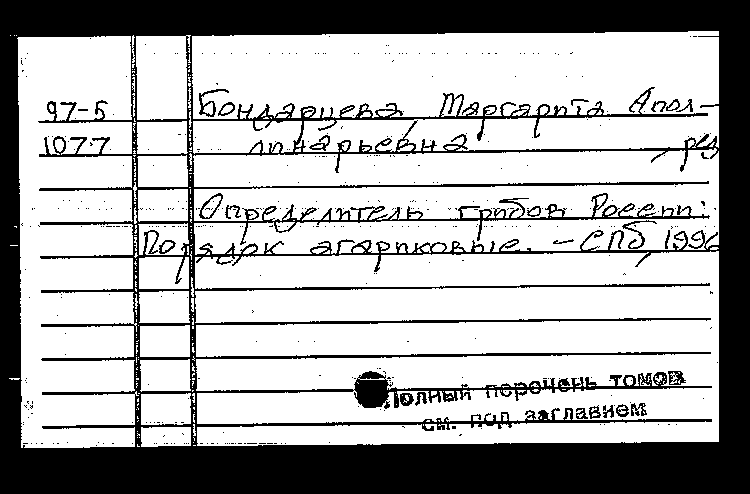 97-5 Бондарцева, Маргарита Апол-
1077 линарьевна , ред
Определитель грибов России:
Порядок агариковые. - СПб, 1996
Полный перечень томов
см. под заглавием